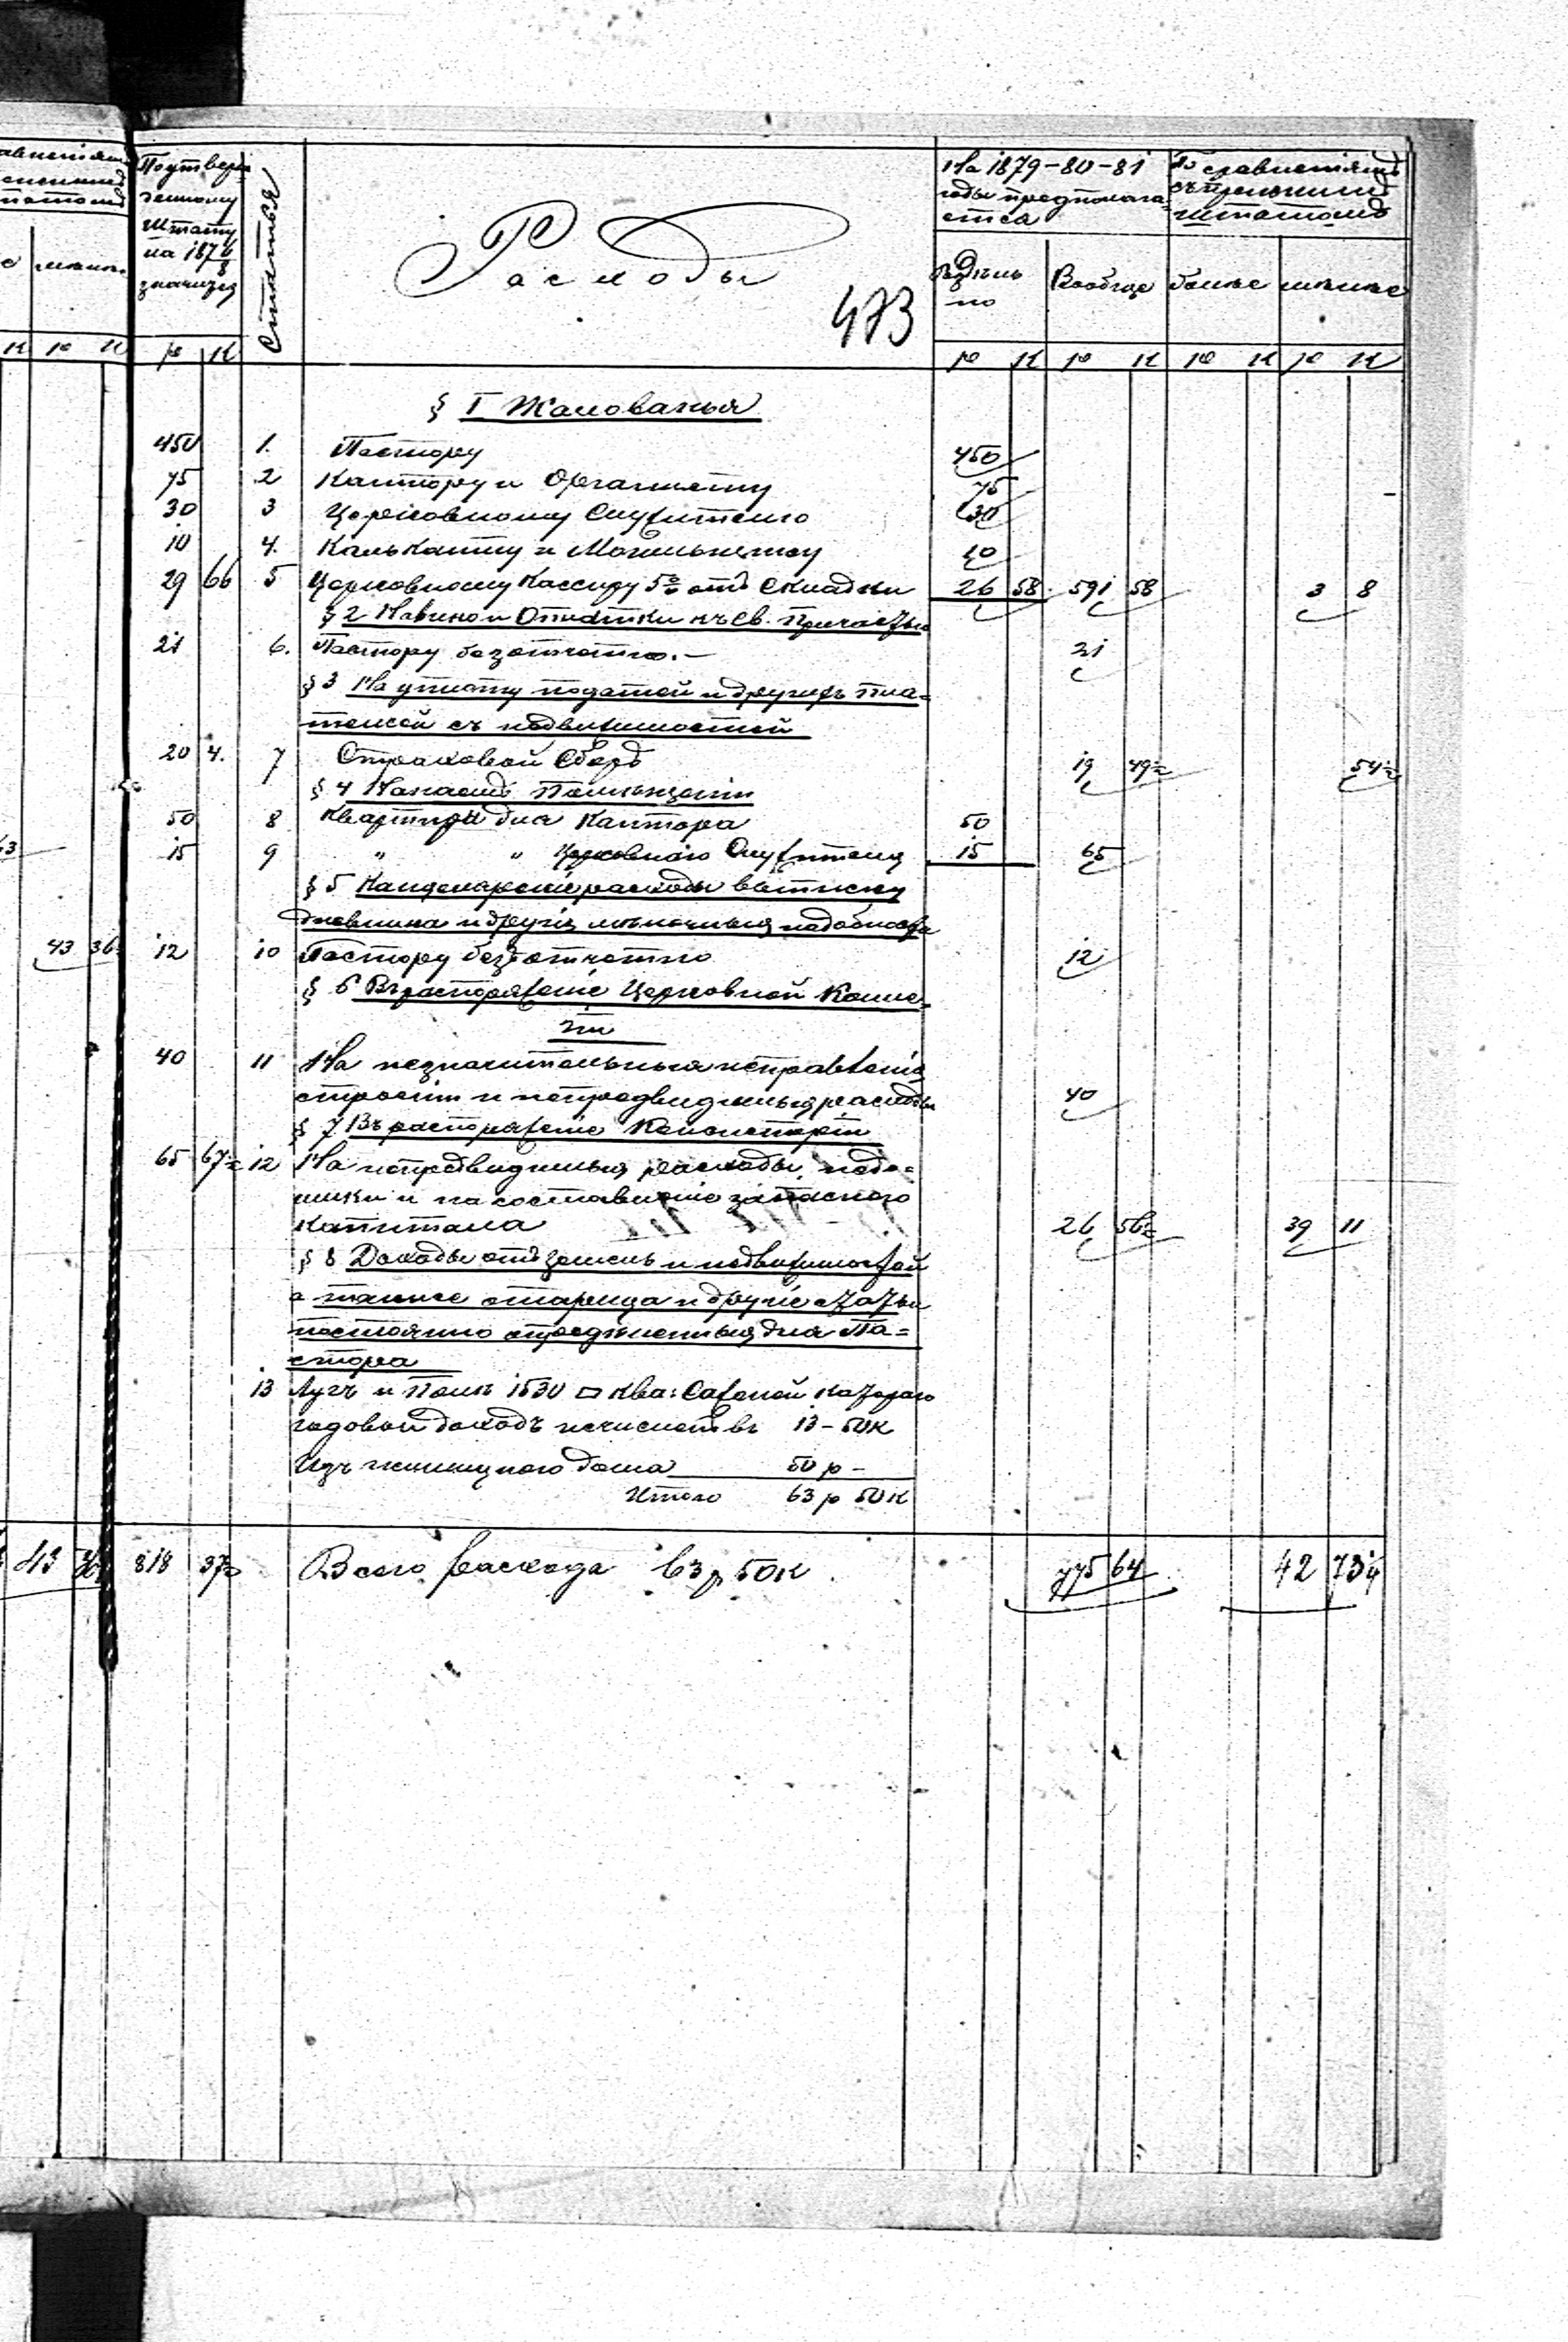 Подтверж
денному
штату
на 1876/8
значится
Статья
Расходы
473
На 1879-80-81
годы предполага-
ется
По сравненiямъ
съ прежнимъ
штатомъ
Раздѣль
но
Вообще
болѣе
менѣе
р К р К р К р К р К
§ I Жалованья
450 1. Пастору 450
75 2 Кантору и Органисту 75
30 3 Церковному Служителю 30
10 4. Кальканту и Могильнику 10
29 66 5 Церковному Кассиру 5% отъ Складки 26 58 591 58 3 8
§ 2 На вино и Оплатки къ Св. Причастью
21 6. Пастору безотчетно.- 21
§ 3 На уплату податей и другихъ пла-
тежей съ недвижимостей
20 4. 7 Страховой Сборъ 19 49½ 54½
§ 4 Наемъ Помѣщенiи
50 8 Квартиры для Кантора 50
15 9 " " Церковнаго Служителя 15 65
§ 5 Канцелярскiе расходы выписку
дневника и другiя мѣлочныя надобности
43 36 12 10 Пастору безъотчетно 12
§ 6 Въ распоряженiе Церковной Колле-
гiи
40 11 На незначительныя исправленiя
строенiи и непредвидѣнныя расходы 40
§ 7 Въ распоряженiе Консисторiи
65 67½ 12 На непредвидѣнныя расходы, недо-
имки и на составленiе запаснаго
Капитала 26 56½ 39 11
§ 8 Доходы отъ земель и недвижимостей
а также отарица и другiе статьи
постоянно опредѣленныя для Па-
стора
13 Лугъ и Поля 1530 □ Ква: Саженей котораго
годовой доходъ исчисленъ въ 13-50к
Изъ жилищнаго дома 50 р -
Итого 63 р 50к
43 818 37½ Всего расхода 63 р 50к. 775 64 42 73½